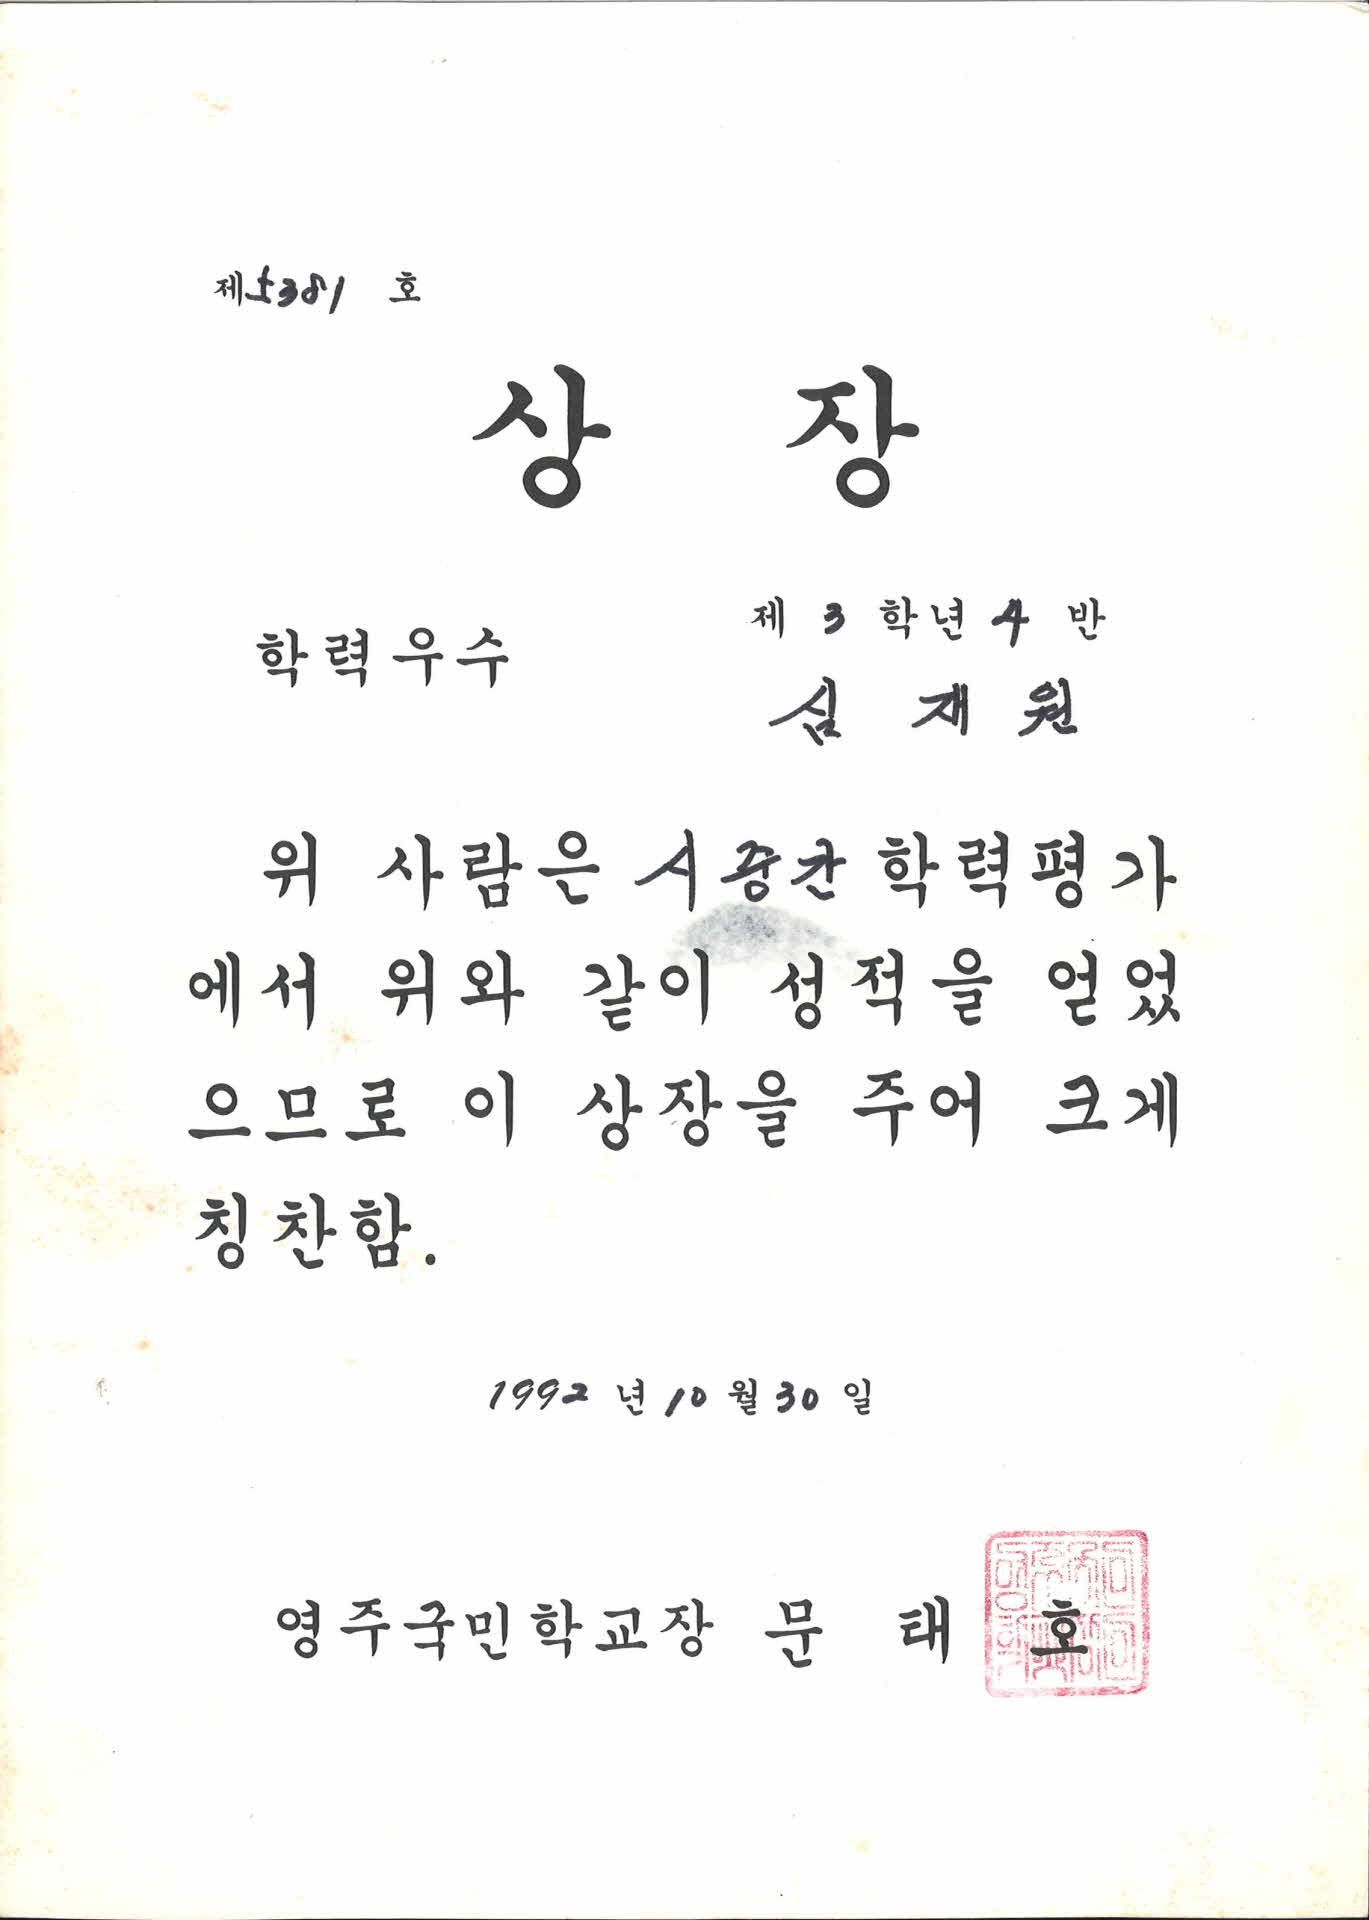 제5381 호
상 장
학력우수
제 3 학년 4 반
심 재 원
위 사람은 시중간 학력평가
에서 위와 같이 성적을 얻었
으므로 이 상장을 주어 크게
칭찬함.
1992 년 10 월 30 일
영주국민학교장 문 태 호